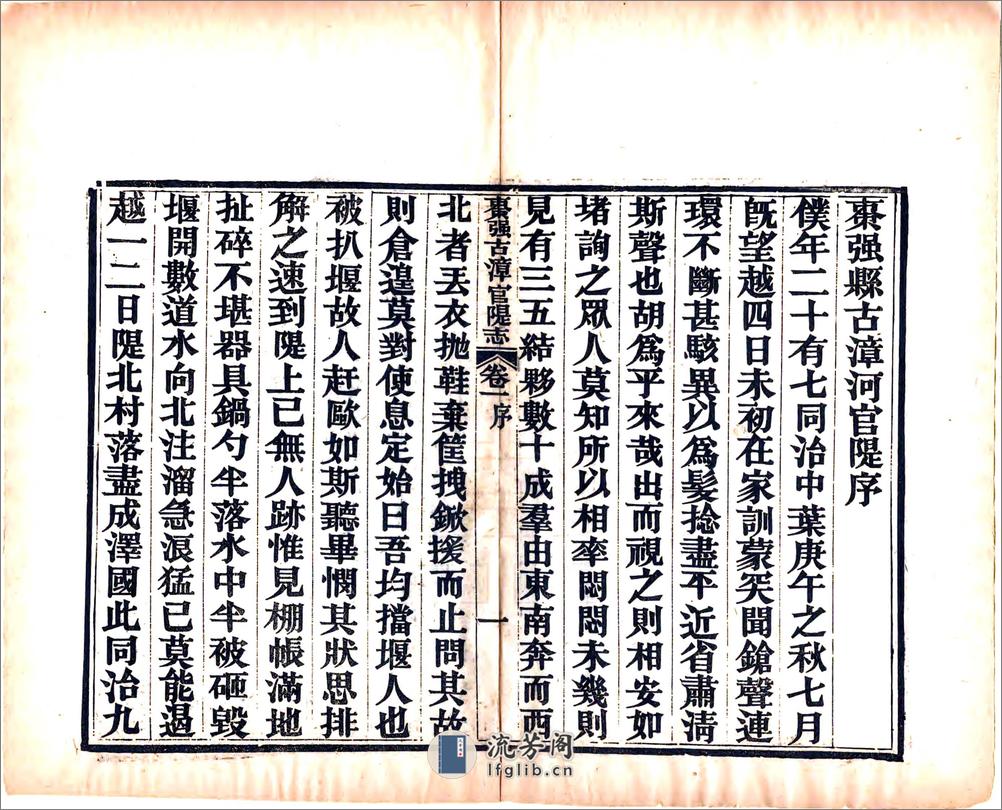 棗强縣古漳河官隄序
僕年二十有七同治中葉庚午之秋七月
旣望越四日未初在家訓蒙突聞鎗聲連
環不斷甚駭異以爲髮捻盡平近省肅淸
斯聲也胡爲乎來哉出而視之則相安如
堵詢之眾人莫知所以相率悶悶未幾則
見有三五結夥數十成羣由東南奔而西
棗强古漳官隄志 卷一序 一
北者丟衣抛鞋棄筐拽鍁援而止問其故
則倉遑莫對使息定始曰吾均擋堰人也
被扒堰故人赶歐如斯聽畢憫其狀思排
解之速到隄上已無人跡惟見棚帳滿地
扯碎不堪器具鍋勺半落水中半被砸毀
堰開數道水向北注溜急浪猛已莫能遏
越一二日隄北村落盡成澤國此同治九
流芳閣
lfglib.cn